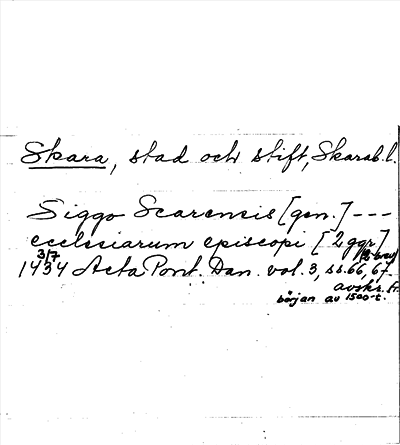 Skara, stad och stift, Skarab. l.
Siggo Scarensis [gen.] ---
ecclesiarum episcopi [2 ggr]
3/7 (2 brev)
1434 Acta Pont. Dan. vol. 3, ss. 66, 67.
avskr. fr.
början av 1500-t.